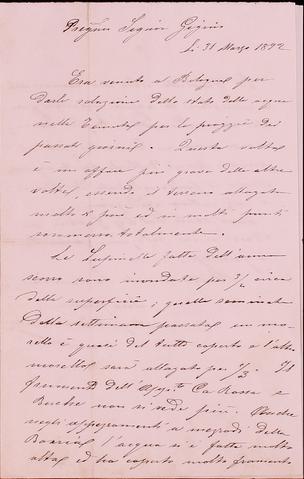 Pregmo Signor Gigino
Li 31 Marzo 1892
Era venuto a Bologna per
darle relazione dello stato delle acque
nella Tenuta per le pioggie dei
passati giorni. Questa volta
è un affare più grave delle altre
volte, essendo il terreno allagato
molto di più ed in molti punti
sommerso totalmente.
Le Lupinelle fatte dell'anno
scorso sono inondate per 3/4 circa
della superficie; quelle seminate
della settimana passata un
è quasi del tutto coperto e l'altro
sarà allagato per 2/3. I
frumenti dell' Appto Ca Rossa e
non si vede più. Anche
negli appezzamenti a mezzodì della
Boaria l'acqua si è fatta molto
alta ed ha coperto molto frumento